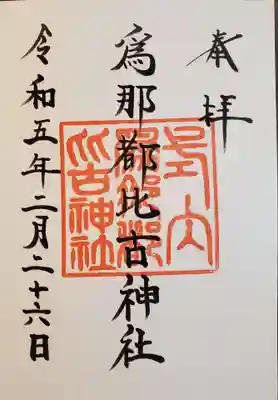 奉拝
爲那都比古神社
令和五年二月二十六日